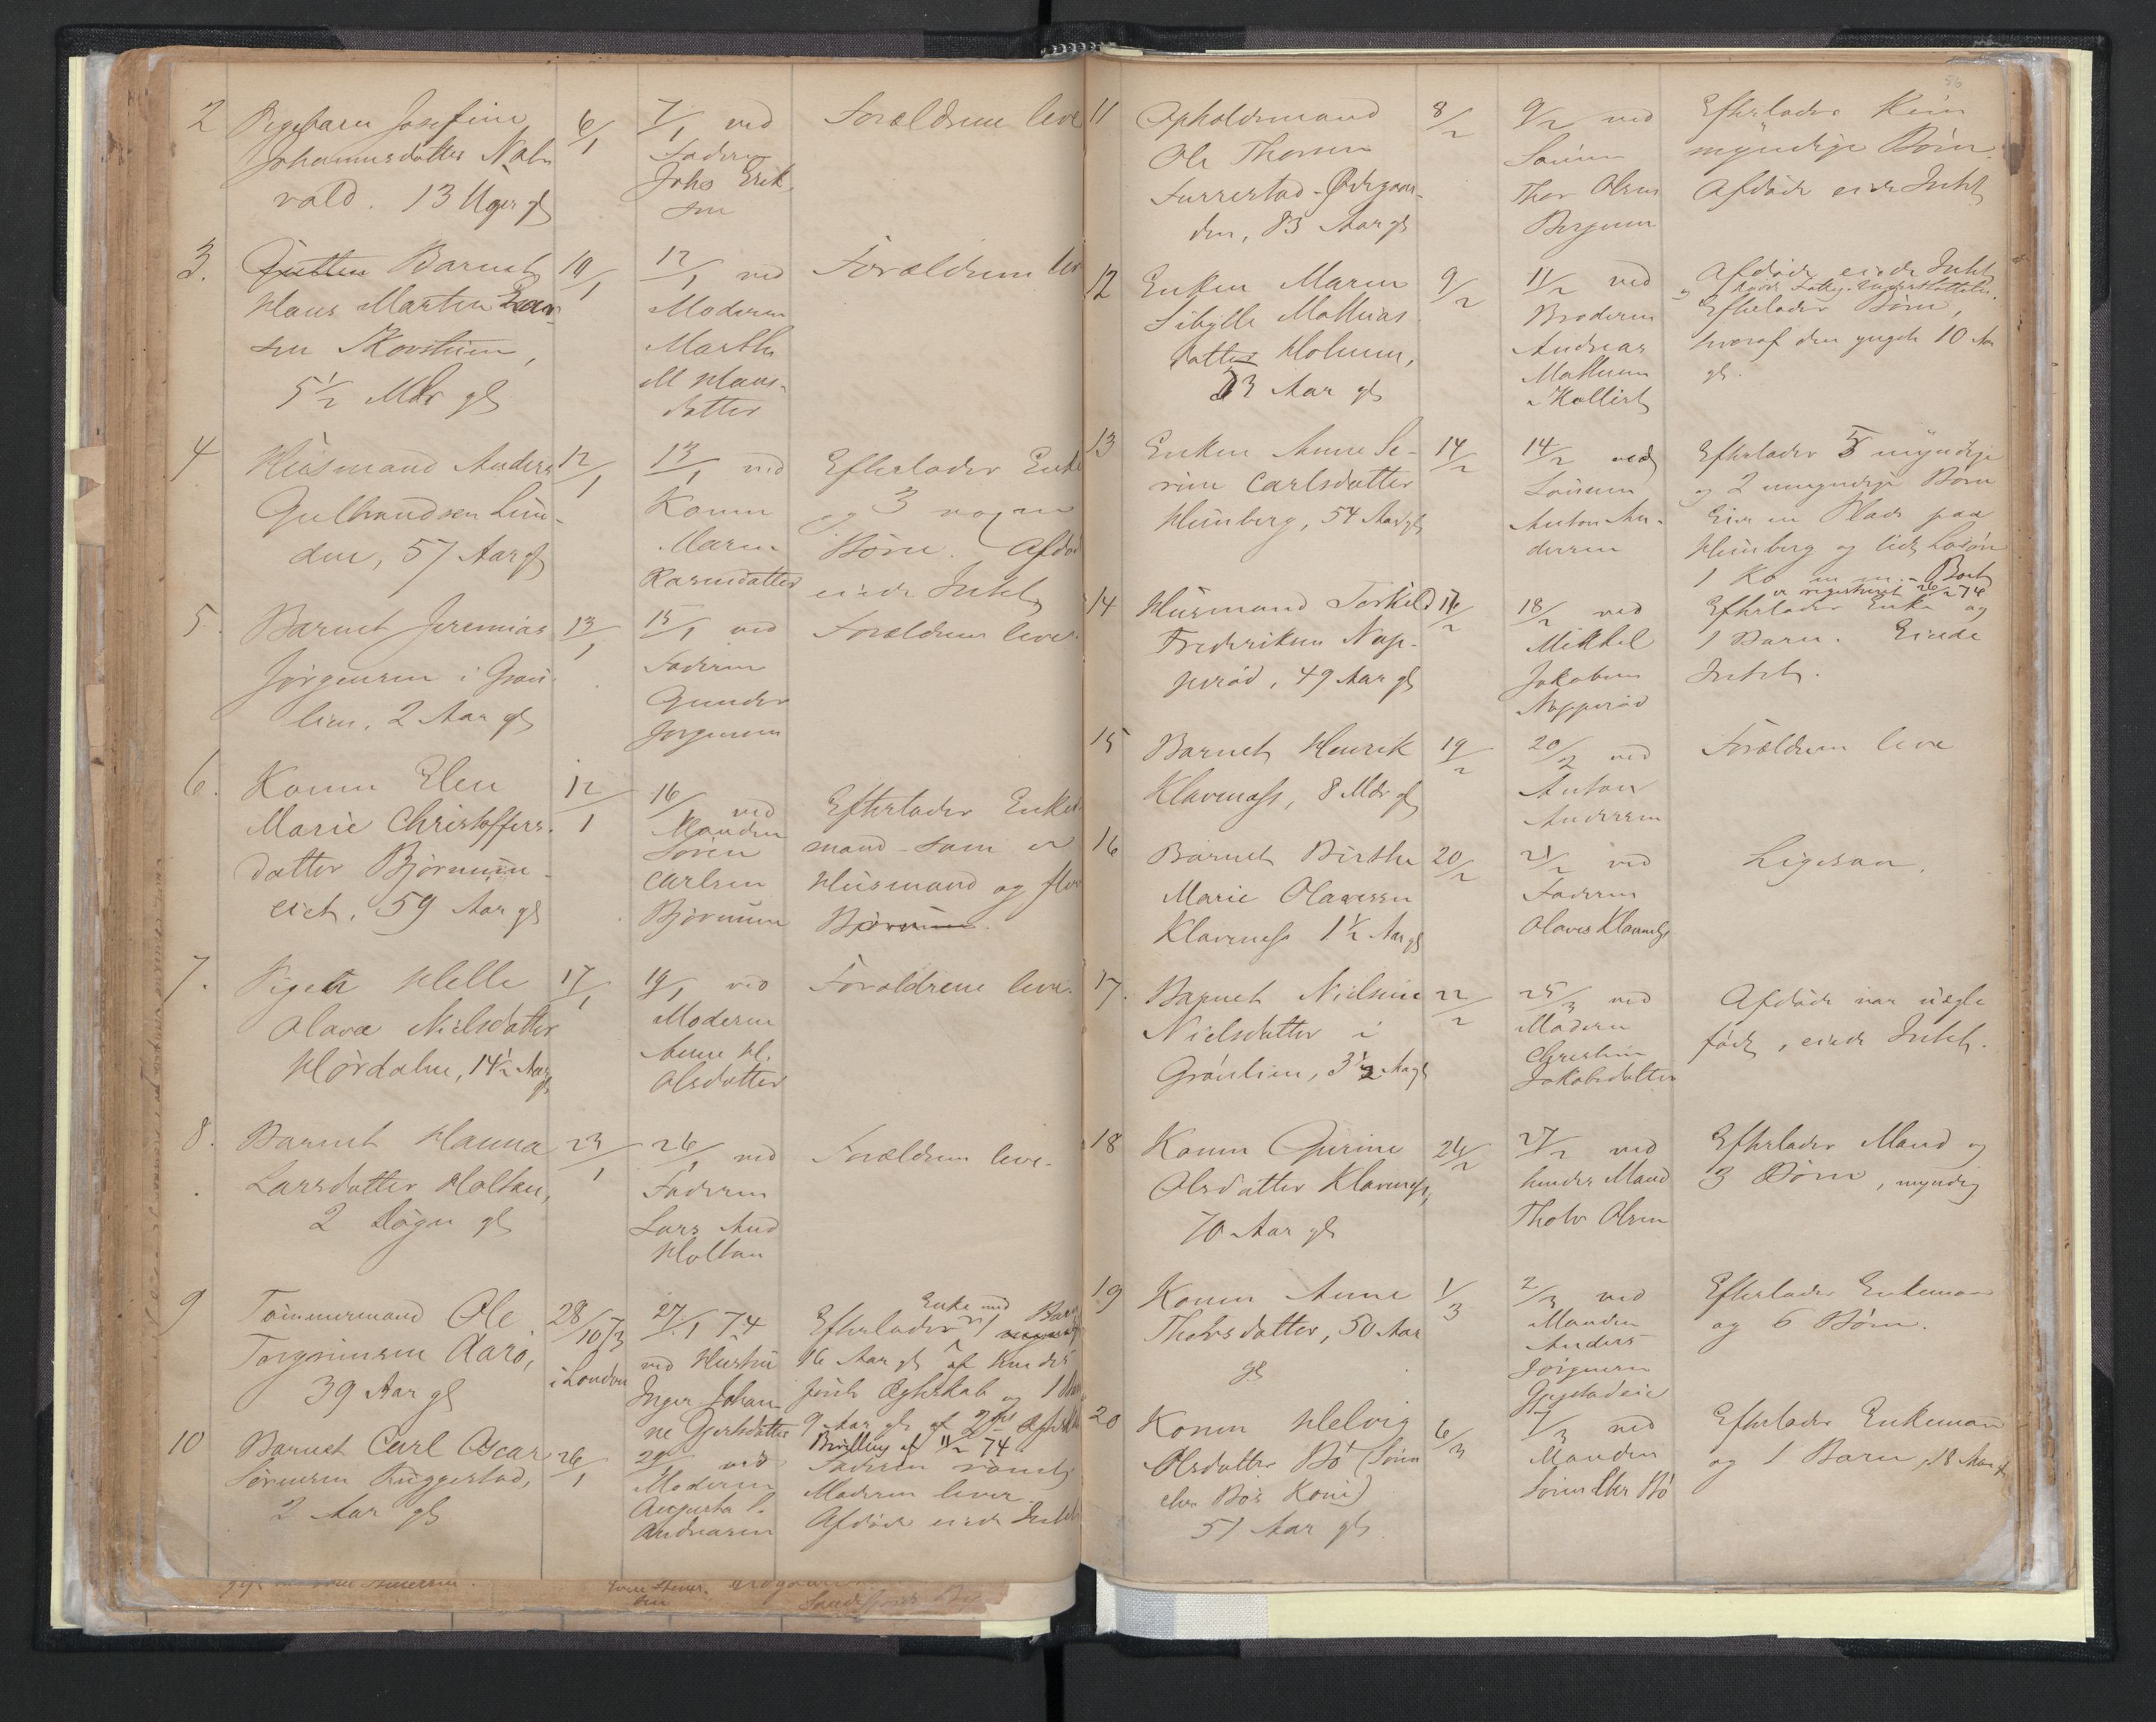 2 Pigebarn Josefine
Johannesdatter
vald. 13 Uger gl
6/1
7/1 ved
Faderen
Johs Erik
sen
Forældrene leve
3. Barnet
Hans Martin
sen
5 1/2 Mdr gl
10/1
12/1 ved
Moderen
Marthe
M Hans-
datter
Forældrene lev
4 Husmand Anders
Gulbrandsen Lun-
den, 57 Aar gl
12/1
13/1 ved
Konen
Maren
Rasmusdatter
Efterlader Enke
og 3 voxne
Børn. Afdøde
eiede Intet
5. Barnet Jeremias
Jørgensen i Grøn-
lien, 2 Aar gl
13/1
15/1 ved
Faderen
Gunder
Jørgensen
Forældrene leve.
6. Konen Elen
Marie Christoffers-
datter Bjørnum-
eiet, 59 Aar gl
12/1
16/ ved
Manden
Søren
Carlsen
Bjørnum
Efterlader Enke-
mand som er
Husmand og flere
Børn
7. Pigen Helle
Olava Nielsdatter
Hørdalen, 14 1/2 Aar gl
17/1
19/1 ved
Moderen
Anne H.
Olsdatter
Forældrene leve.
8. Barnet Hanna
Larsdatter Holtan,
2 Døgn gl
23/1
26/1 ved
Faderen
Lars And
Holtan
Forældrene leve.
9 Tømmermand Ole
Torgrimsen Aarø,
39 Aar gl
28/10 73
i London
27/1 74
ved Hustru
Inger Johan-
ne Gjertsdatter
Enke med Barn
Efterlader 1
16 Aar gl af hendes
første Ægteskab og 1
9 Aar gl af 2det
Bevilling af 11/2 74
10 Barnet Carl Oscar
Sørensen Ruggerstad,
2 Aar gl
26/1
29/ ved
Moderen
Augusta
Andreasen
Faderen rømt
Moderen lever.
Afdøde eiede Intet
11 Opholdsmand
Ole Thorsen
Furrestad-Ødegaar-
den, 83 Aar gl
8/2
9/2 ved
Sønnen
Thor Olsen
Bergerem
Efterlader kun
myndige Børn.
Afdøde eiede Intet
12 Enken Maren
Sibylle Mathias
datter Holmen,
73 Aar gl
9/2
11/2 ved
Broderen
Andreas
Mathisen
Afdøde eiede Intet
Efterlader Børn,
hvoraf den yngste 10 Aar
gl.
13 Enken Anne Se-
rine Carlsdatter
Hunberg, 54 Aar gl
14/2
14/2 ved
Sønnen
Anton An-
dersen
Efterlader 5 myndige
og 2 umyndige Børn
Eier en Plads paa
Hunberg og lidt Løsøre
1 Ko m m. - Boet
er registreret 26/2 74
14 Husmand Torkild
Frederiksen Nop-
perød, 49 Aar gl
16/2
18/2 ved
Mikkel
Jakobsen
Nopperød
Efterlader Enke og
1 Barn. Eiede
Intet.
15 Barnet Henrik
Klavenæss, 8 Mdr gl
19/2
20/2 ved
Anton
Andersen
Forældrene leve
16 Barnet Birthe
Marie Olavesen
Klavenæss 1 1/2 Aar gl
20/2
21/2 ved
Faderen
Olaves Klavenæss
Ligesaa.
17. Barnet Nielsine
Nielsdatter i
Grønlien, 3 1/2 Aar gl
22/2
25/3 ved
Moderen
Christine
Jakobsdatter
Afdøde var uægte
født, eiede Intet.
18 Konen Gurine
Olsdatter Klavenæss,
70 Aar gl
24/2
27/2 ved
hendes Mand
Tholv Olsen
Efterlader Mand og
3 Børn, myndig
19 Konen Anne
Tholvsdatter, 50 Aar
gl
1/3
2/3 ved
Manden
Anders
Jørgensen
Efterlader Enkemand
og 6 Børn.
20 Konen Helvig
Olsdatter Bø (Søren
Chr. Bøs Kone)
51 Aar gl.
6/3
7/3 ved
Manden
Søren Chr Bø
Efterlader Enkemand
og 1 Barn, 18 Aar gl